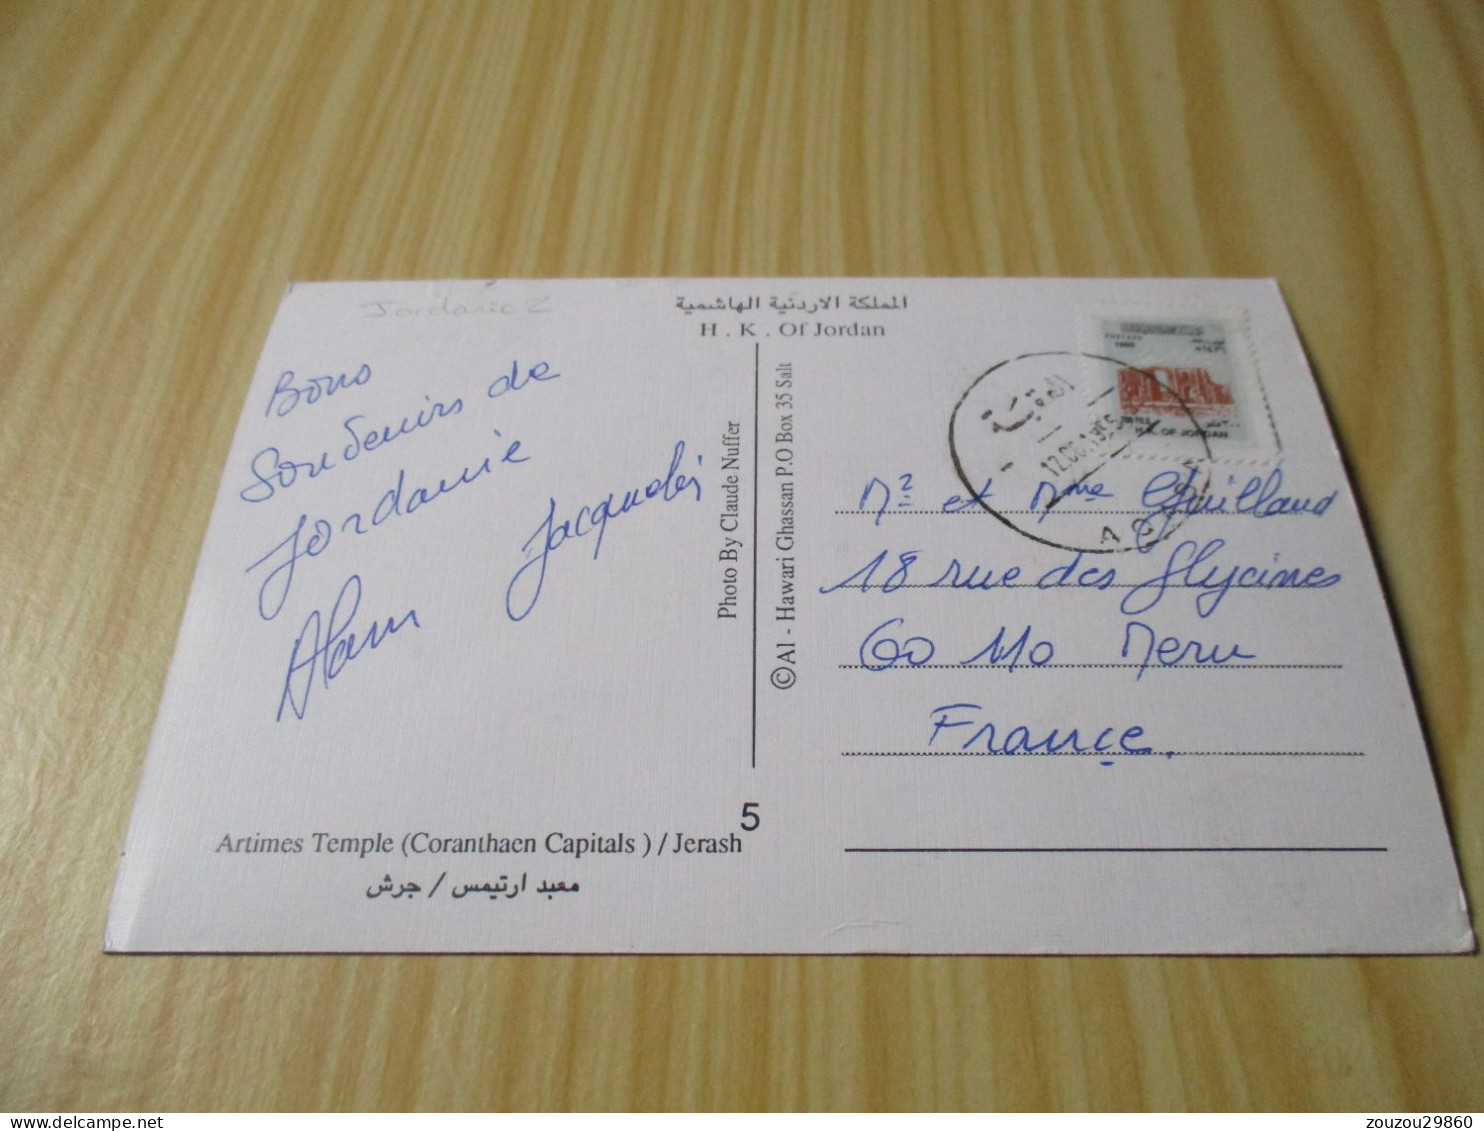 Jordanie 2
المملكة الاردنية الهاشمية
H . K . Of Jordan
Bons
Souvenirs de
Jordanie
Alain Jacqueline
Photo By Claude Nuffer
©Al - Hawari Ghassan P.O Box 35 Salt
العقبة
POSTAGE
1990
H.K. OF JORDAN
Mr et Mme Guilland
18 rue des Glycines
60 110 Meru
France.
5
Artimes Temple (Coranthaen Capitals ) / Jerash
معبد ارتيمس / جرش
zouzou29860